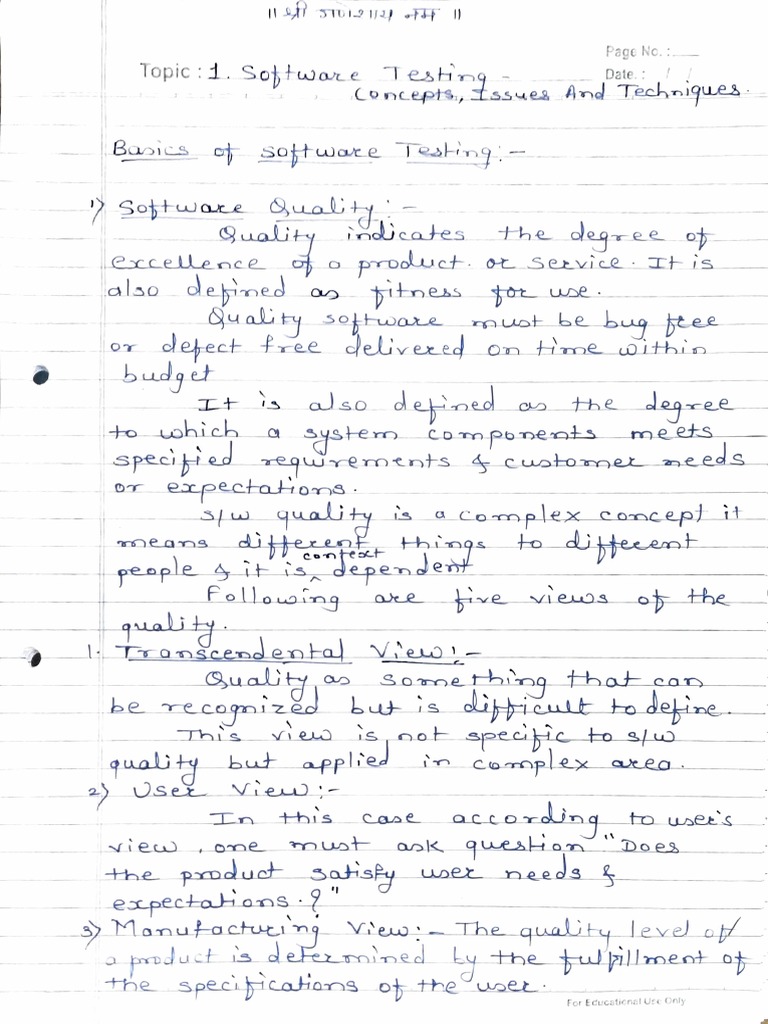 ॥ श्री गणेशाय नमः ॥
Page No. :
Topic : 1. Software Testing -
Date. : / /
Concepts, Issues And Techniques.
Basics of software Testing :-
1) Software Quality :-
Quality indicates the degree of
excellence of a product. or service. It is
also defined as fitness for use.
Quality software must be bug free
or defect free delivered on time within
budget
It is also defined as the degree
to which a system components meets
specified requirements & customer needs
or expectations.
s/w quality is a complex concept it
means different things to different
context
people & it is ^ dependent
Following are five views of the
quality.
1. Transcendental View :-
Quality as something that can
be recognized but is difficult to define.
This view is not specific to s/w
quality but applied in complex area.
2) User View :-
In this case according to user's
view, one must ask question "Does
the product satisfy user needs &
expectations.?"
3) Manufacturing View :- The quality level of
a product is determined by the fulfillment of
the specifications of the user.
For Educational Use Only